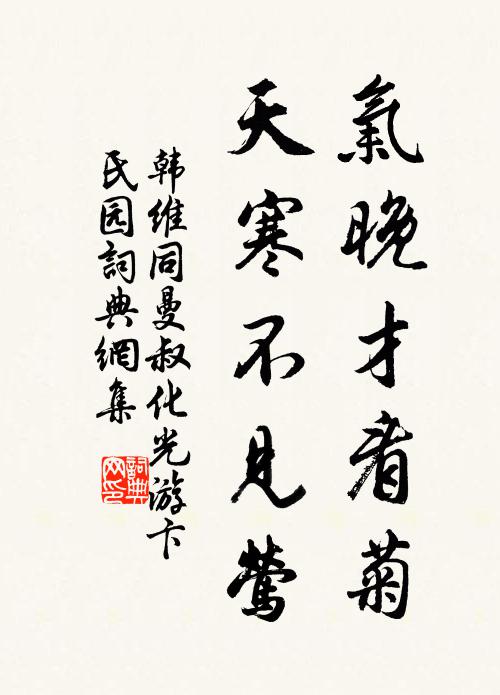 氣晚才看菊
天寒不見莺
韩维同曼叔化光游卞
氏园詞典網集
詞典
网印